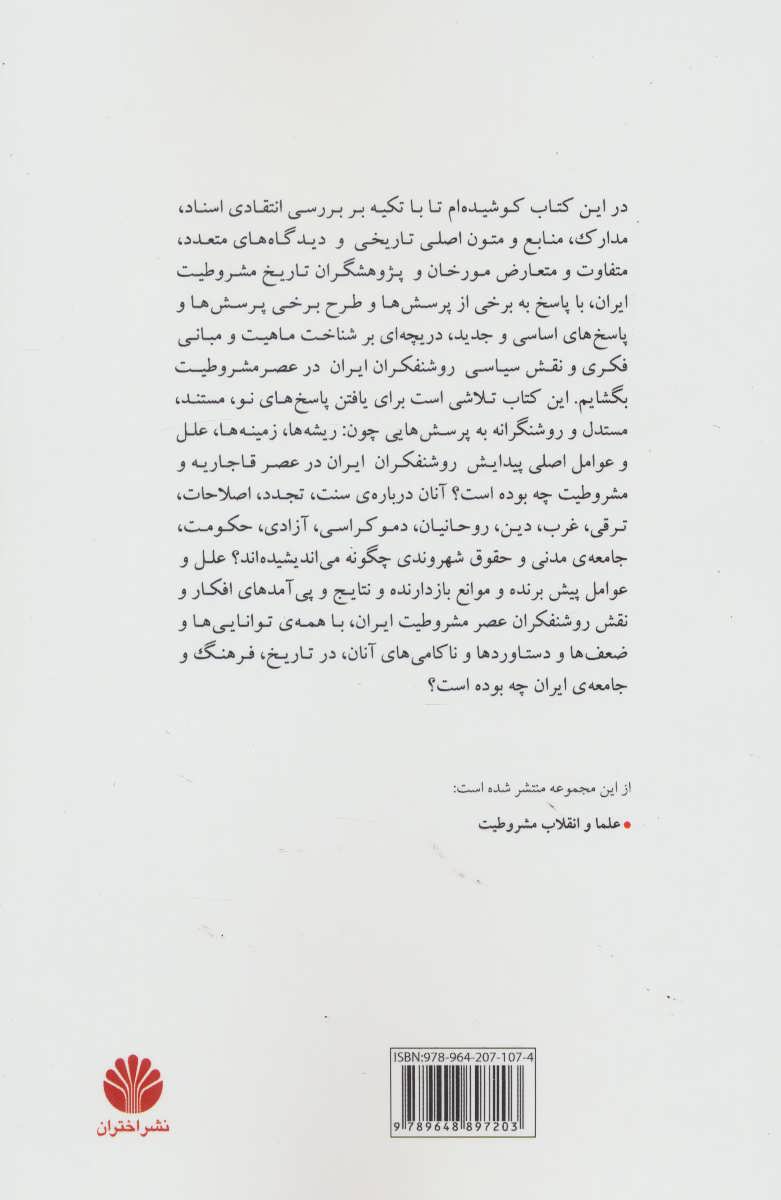 در این کتاب کوشیده‌ام تا با تکیه بر بررسی انتقادی اسناد،
مدارک، منابع و متون اصلی تاریخی و دیدگاه‌های متعدد،
متفاوت و متعارض مورخان و پژوهشگران تاریخ مشروطیت
ایران، با پاسخ به برخی از پرسش‌ها و طرح برخی پرسش‌ها و
پاسخ‌های اساسی و جدید، دریچه‌ای بر شناخت ماهیت و مبانی
فکری و نقش سیاسی روشنفکران ایران در عصرمشروطیت
بگشایم. این کتاب تلاشی است برای یافتن پاسخ‌های نو، مستند،
مستدل و روشنگرانه به پرسش‌هایی چون: ریشه‌ها، زمینه‌ها، علل
و عوامل اصلی پیدایش روشنفکران ایران در عصر قاجاریه و
مشروطیت چه بوده است؟ آنان درباره‌ی سنت، تجدد، اصلاحات،
ترقی، غرب، دین، روحانیان، دموکراسی، آزادی، حکومت،
جامعه‌ی مدنی و حقوق شهروندی چگونه می‌اندیشیده‌اند؟ علل و
عوامل پیش برنده و موانع بازدارنده و نتایج و پی‌آمدهای افکار و
نقش روشنفکران عصر مشروطیت ایران، با همه‌ی توانایی‌ها و
ضعف‌ها و دستاوردها و ناکامی‌های آنان، در تاریخ، فرهنگ و
جامعه‌ی ایران چه بوده است؟
از این مجموعه منتشر شده است:
• علما و انقلاب مشروطیت
ISBN:978-964-207-107-4
9 789648 897203
نشر اختران